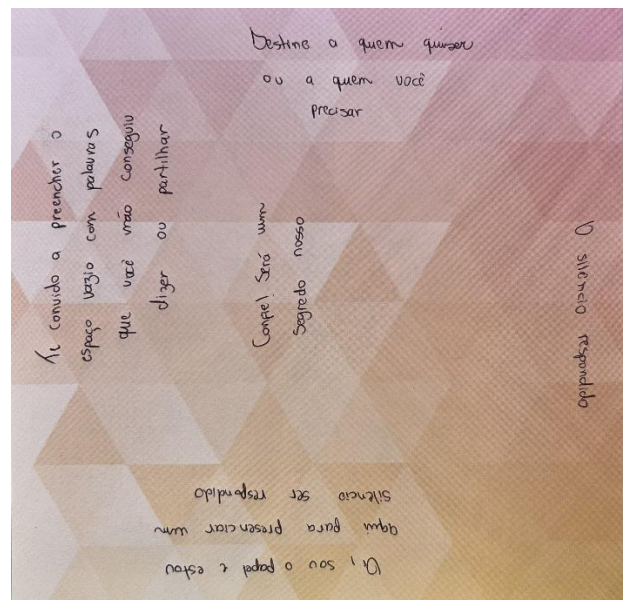 Destine a quem quiser
ou a quem você
precisar
Te convido a preencher o
espaço vazio com palavras
que você não conseguiu
dizer ou partilhar
Confie! Será um
segredo nosso
O silêncio respondido
Oi, sou o papel e estou
aqui para presenciar um
silêncio ser respondido